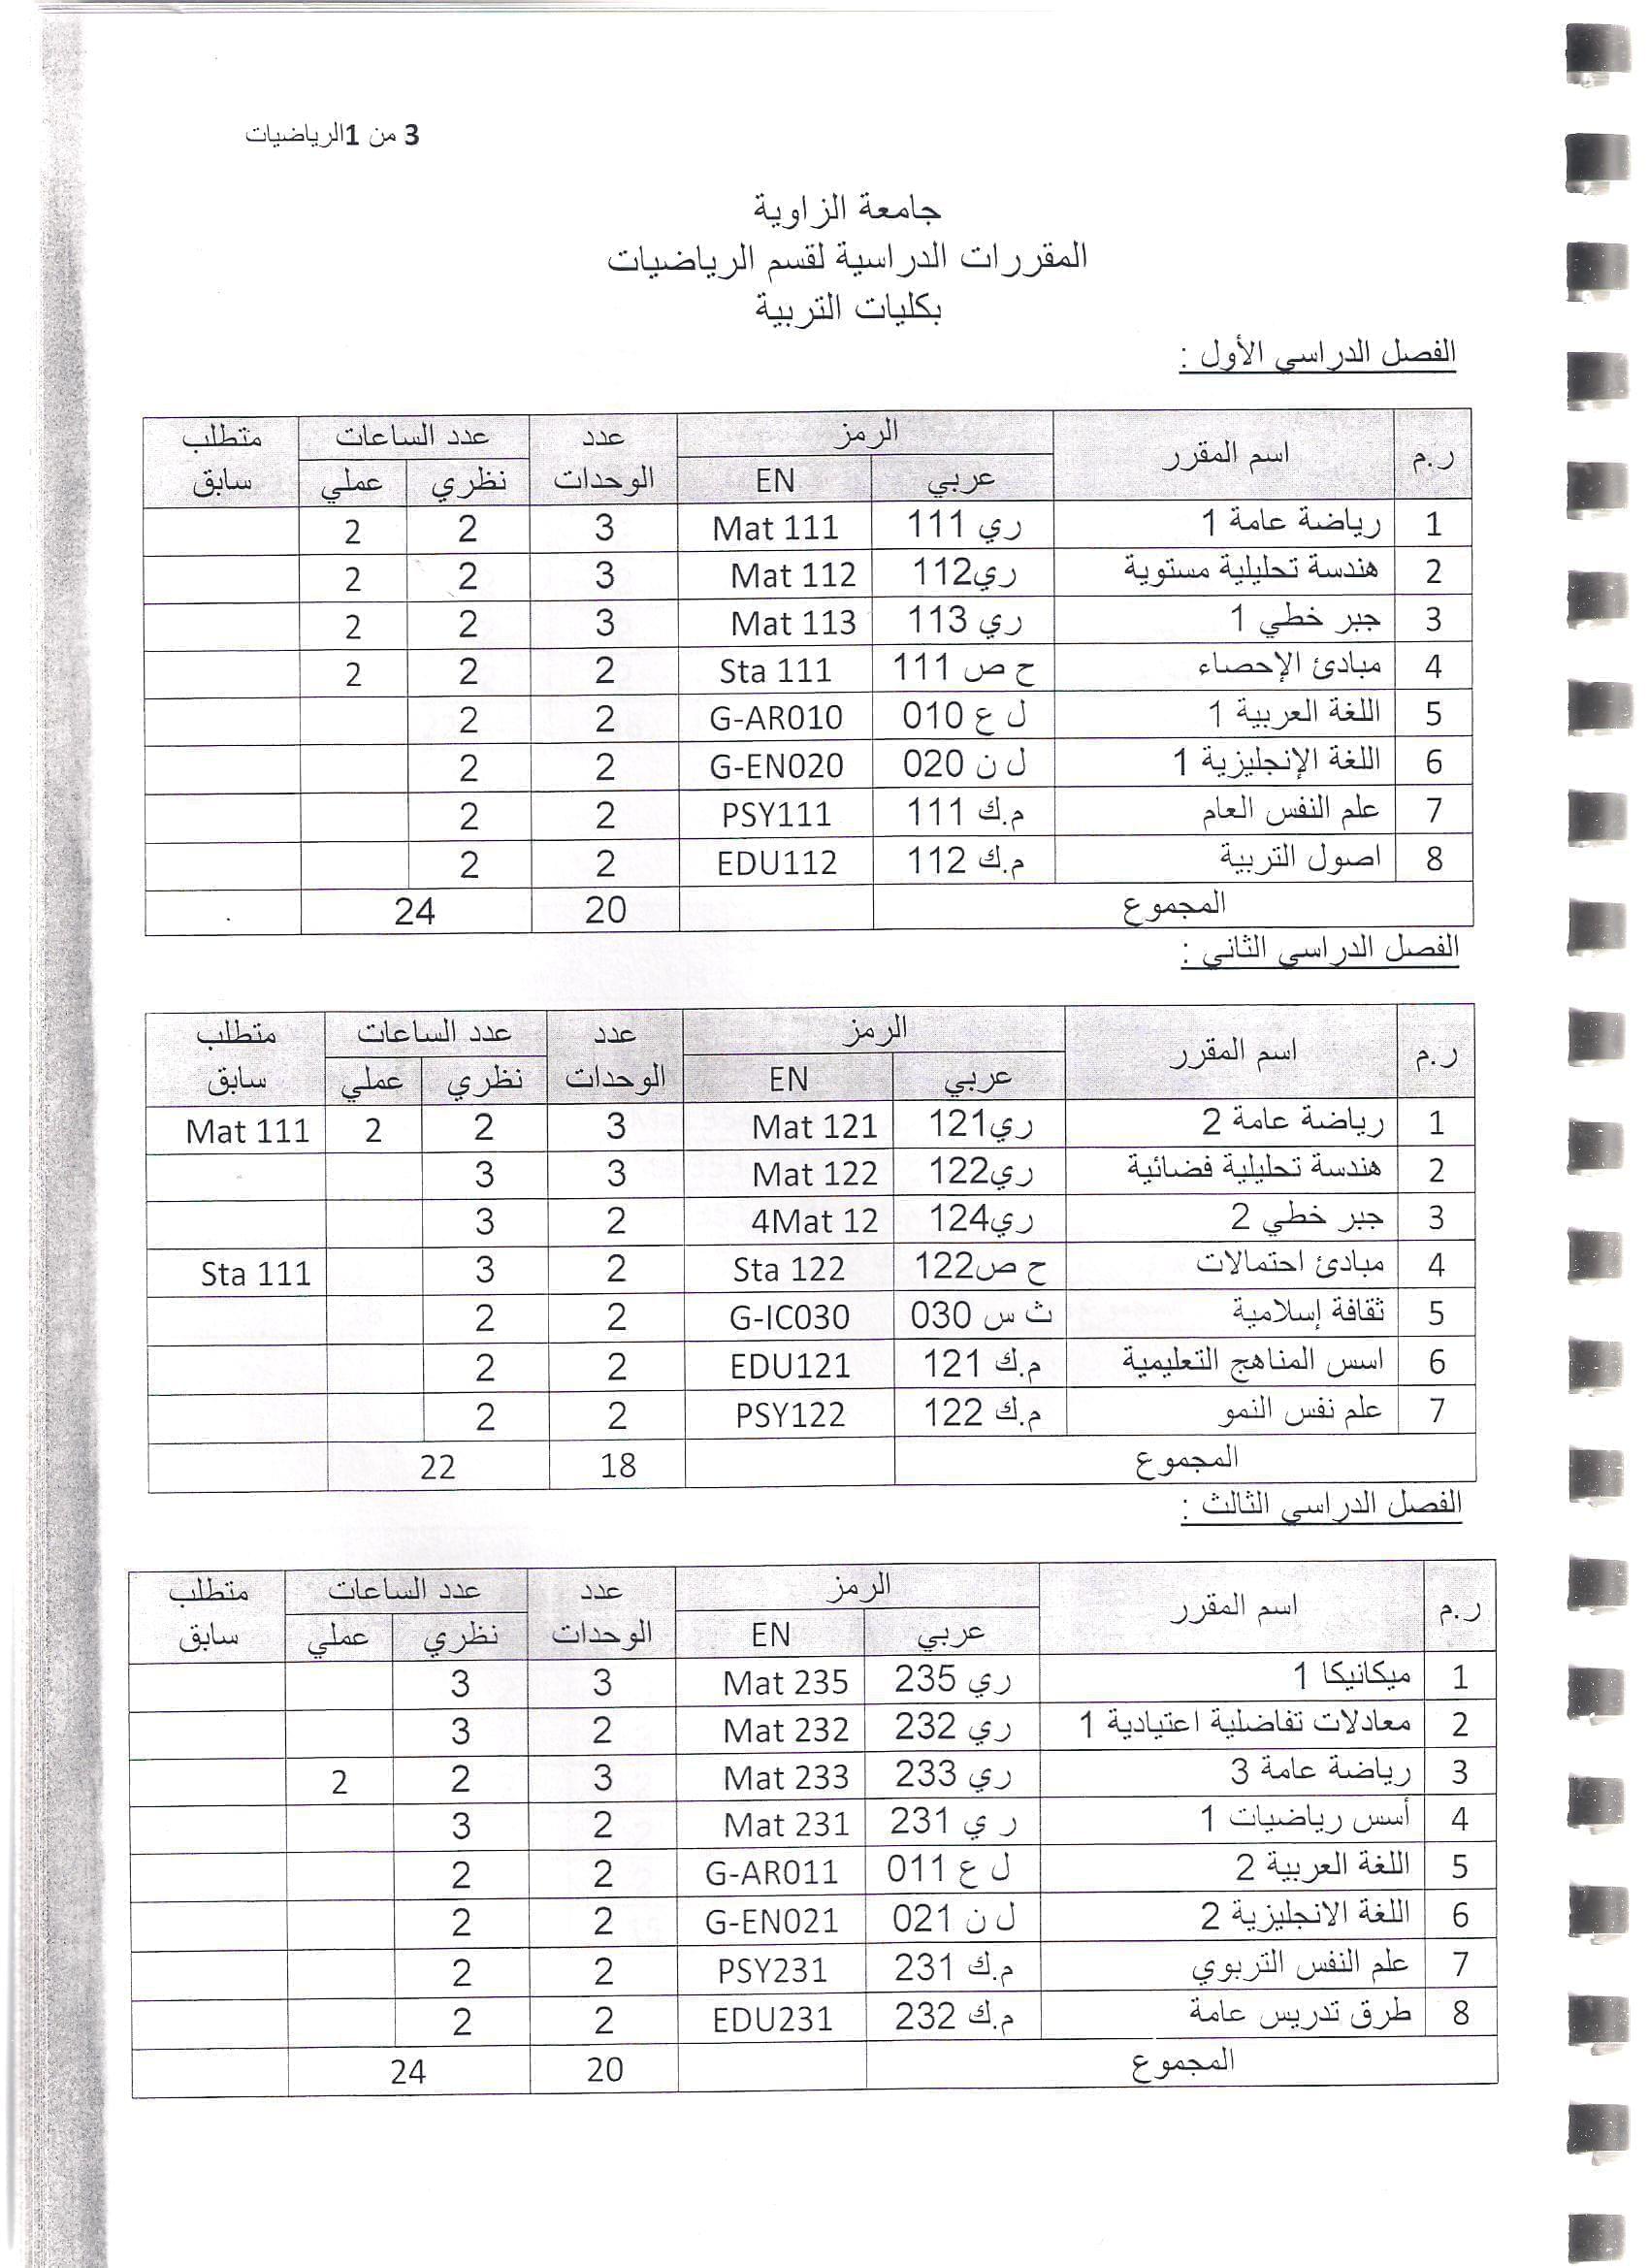 3 من 1الرياضيات
جامعة الزاوية
المقررات الدراسية لقسم الرياضيات
بكليات التربية
الفصل الدراسي الأول :
ر.م اسم المقرر الرمز عدد الوحدات عدد الساعات متطلب سابق
عربي EN نظري عملي
1 رياضة عامة 1 ري 111 Mat 111 3 2 2
2 هندسة تحليلية مستوية ري112 Mat 112 3 2 2
3 جبر خطي 1 ري 113 Mat 113 3 2 2
4 مبادئ الإحصاء ح ص 111 Sta 111 2 2 2
5 اللغة العربية 1 ل ع 010 G-AR010 2 2
6 اللغة الإنجليزية 1 ل ن 020 G-EN020 2 2
7 علم النفس العام م.ك 111 PSY111 2 2
8 اصول التربية م.ك 112 EDU112 2 2
المجموع 20 24
الفصل الدراسي الثاني :
ر.م اسم المقرر الرمز عدد الوحدات عدد الساعات متطلب سابق
عربي EN نظري عملي
1 رياضة عامة 2 ري121 Mat 121 3 2 2 Mat 111
2 هندسة تحليلية فضائية ري122 Mat 122 3 3
3 جبر خطي 2 ري124 4Mat 12 2 3
4 مبادئ احتمالات ح ص122 Sta 122 2 3 Sta 111
5 ثقافة إسلامية ث س 030 G-IC030 2 2
6 اسس المناهج التعليمية م.ك 121 EDU121 2 2
7 علم نفس النمو م.ك 122 PSY122 2 2
المجموع 18 22
الفصل الدراسي الثالث :
ر.م اسم المقرر الرمز عدد الوحدات عدد الساعات متطلب سابق
عربي EN نظري عملي
1 ميكانيكا 1 ري 235 Mat 235 3 3
2 معادلات تفاضلية اعتيادية 1 ري 232 Mat 232 2 3
3 رياضة عامة 3 ري 233 Mat 233 3 2 2
4 أسس رياضيات 1 ر ي 231 Mat 231 2 3
5 اللغة العربية 2 ل ع 011 G-AR011 2 2
6 اللغة الانجليزية 2 ل ن 021 G-EN021 2 2
7 علم النفس التربوي م.ك 231 PSY231 2 2
8 طرق تدريس عامة م.ك 232 EDU231 2 2
المجموع 20 24